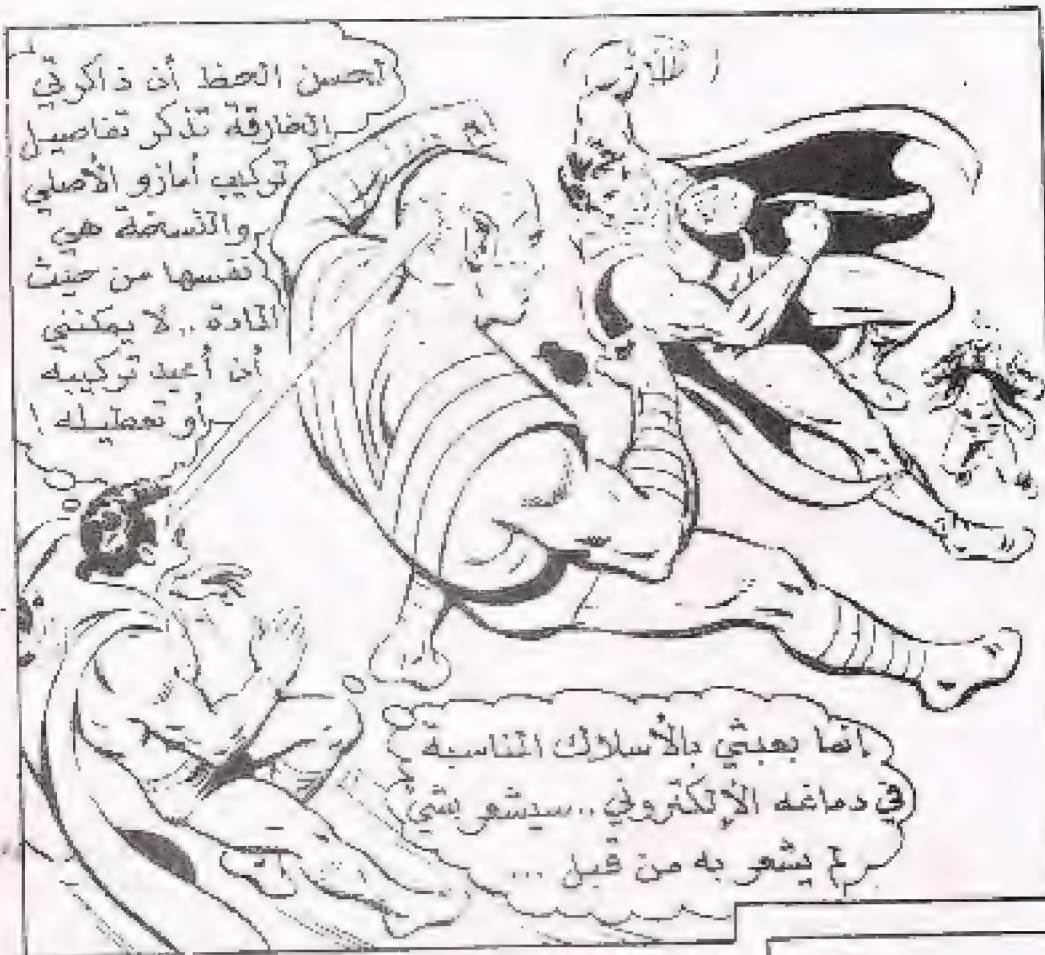 لحسن الحظ أن ذاكرتي
الخارقة تذكر تفاصيل
تركيب أمازو الأصلي
والنسخة هي
نفسها من حيث
المادة .. لا يمكنني
أن أعيد تركيبه
أو تعطيله !
انما بعبثي بالأسلاك المناسبة
في دماغه الألكتروني .. سيشعر بشيء
لم يشعر به من قبل ...